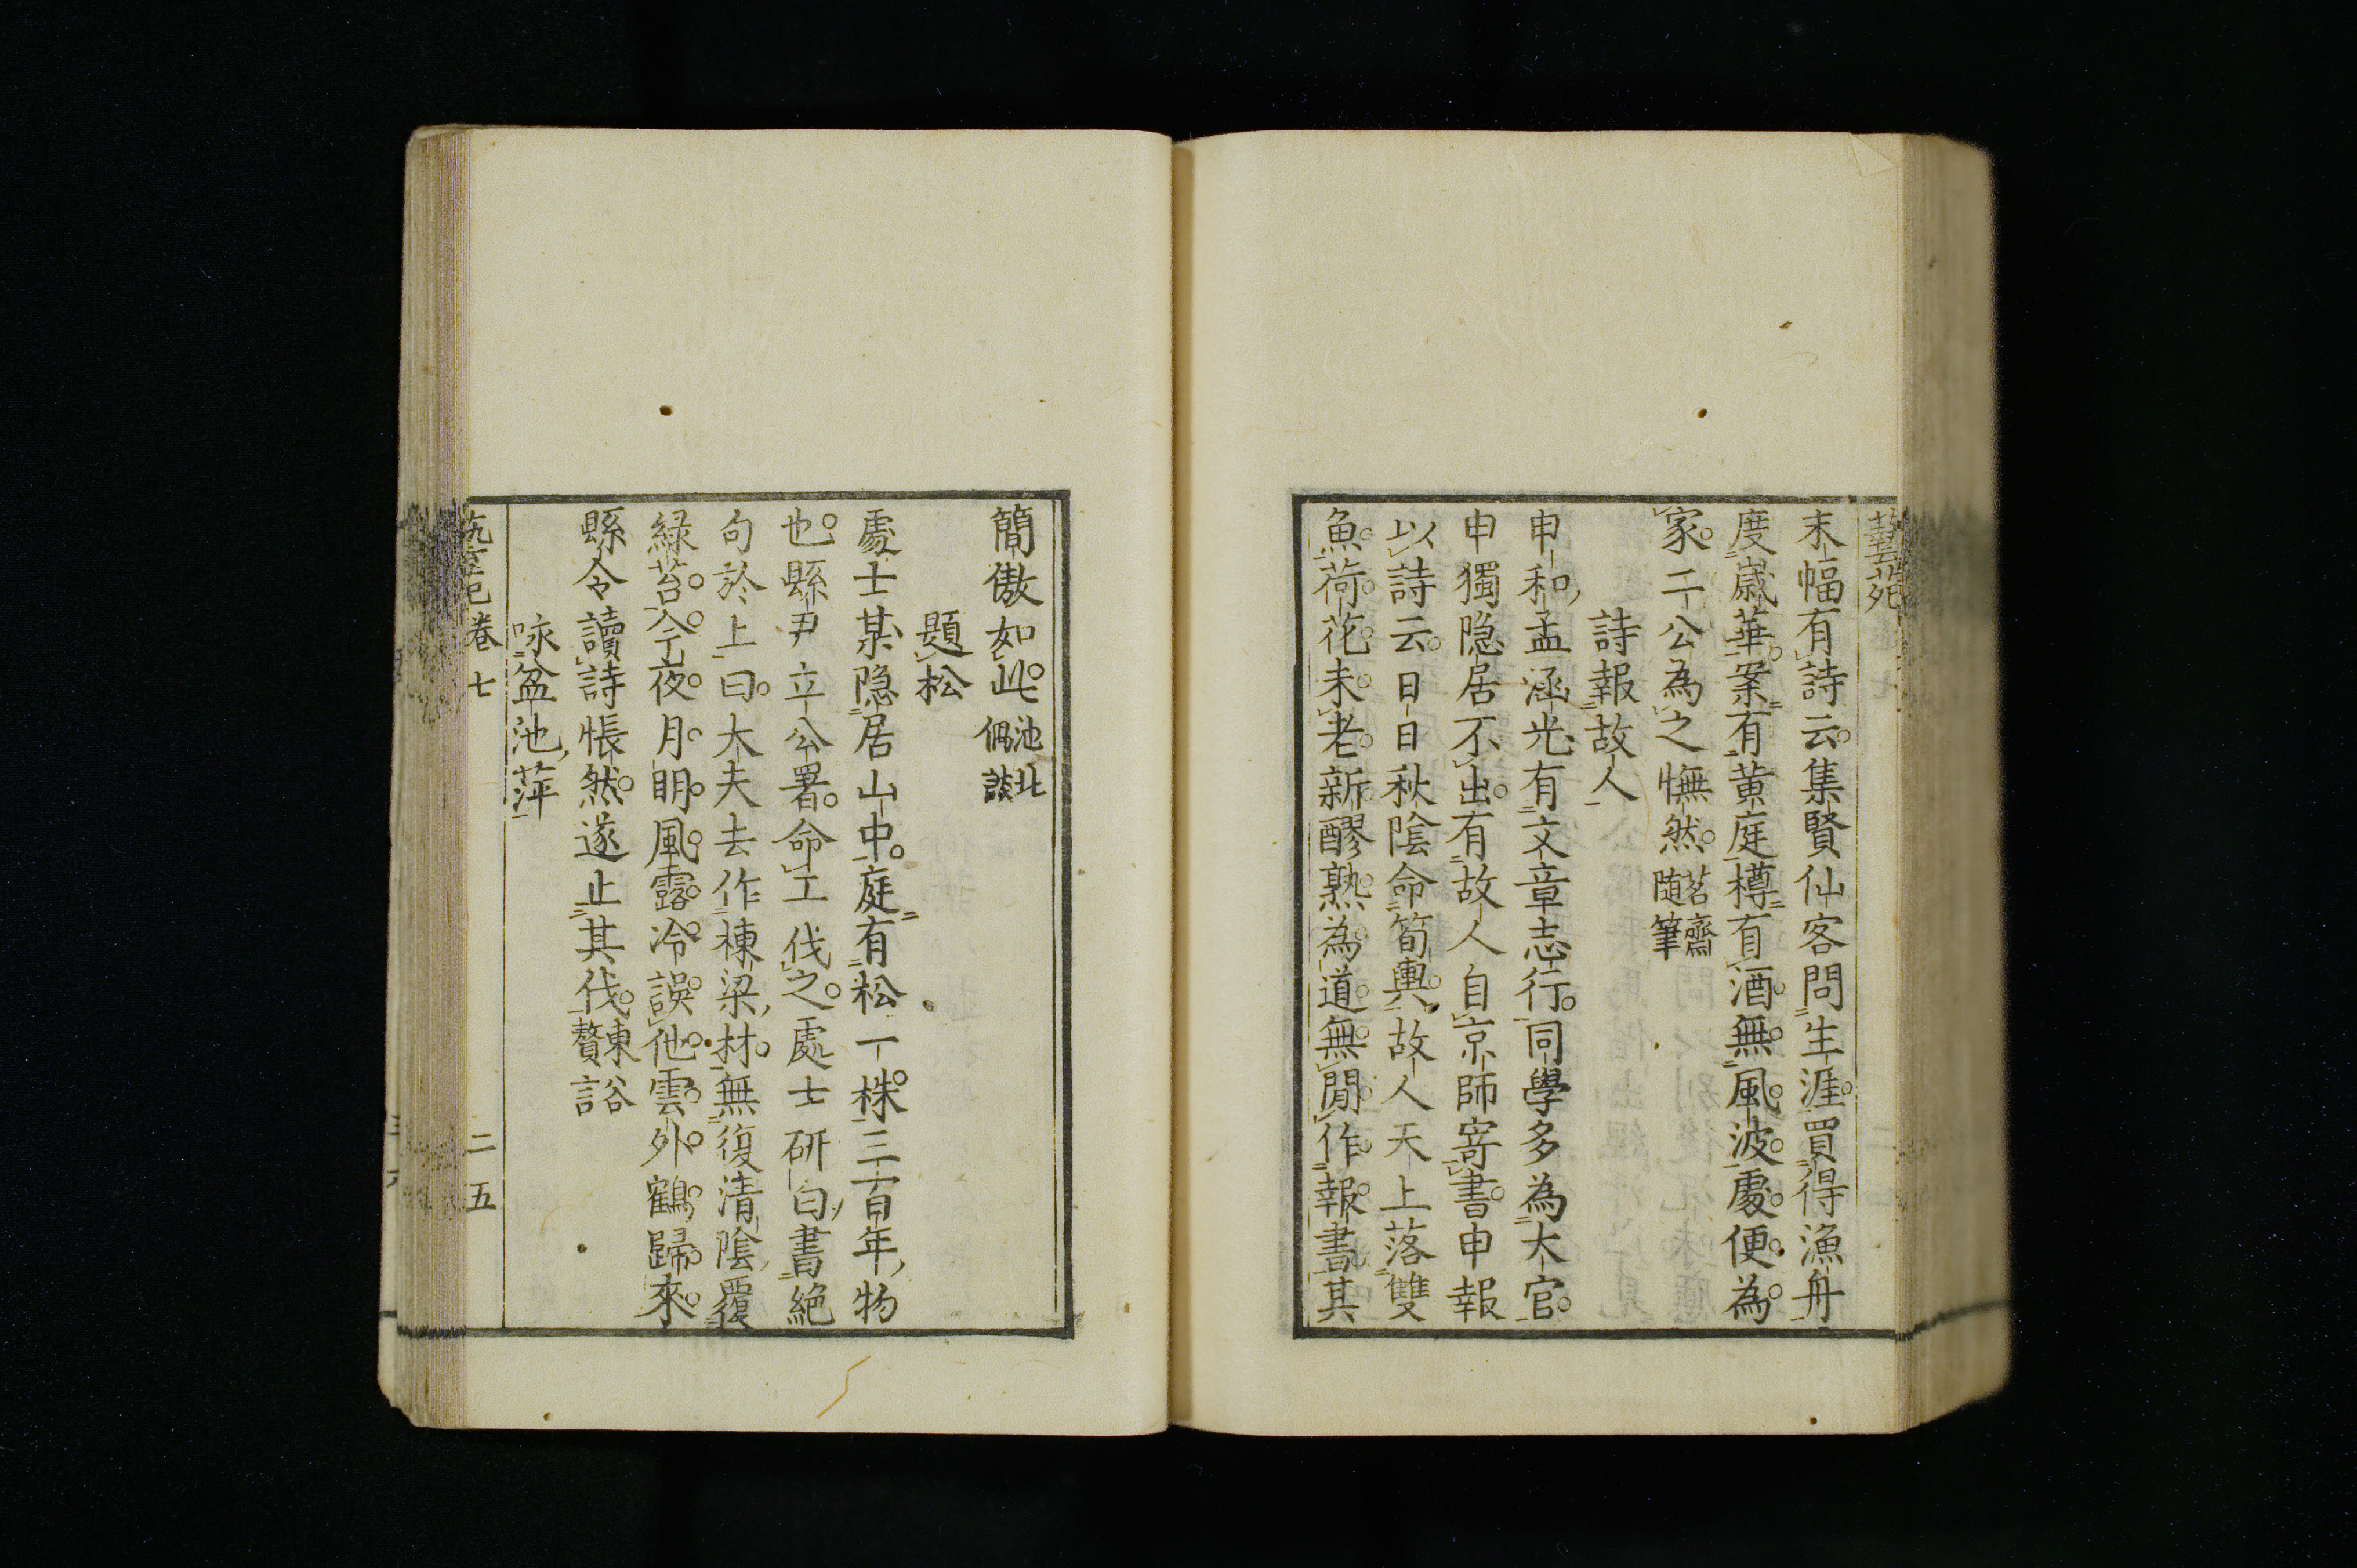 藝苑
末幅有詩云集賢仙客問生涯買得漁舟
度歲華案有黄庭樽有酒無風波處便為
家二公為之憮然茗齋随筆
詩報故人
申和孟涵光有文章志行同學多為大官
申獨隐居不出有故人自京師寄書申報
以詩云日日秋陰命筍輿故人天上落雙
魚荷花未老新醪熟為道無閒作報書其
簡傲如此池北偶談
題松
處士某隐居山中庭有松一株三百年物
也縣尹立公署命工伐之處士研白書絶
句於上曰大夫去作棟梁材無復清陰覆
緑苔今夜月明風露冷誤他雲外鶴歸來
縣令讀詩悵然遂止其伐東谷贅言
咏盆池萍
卷七
二五